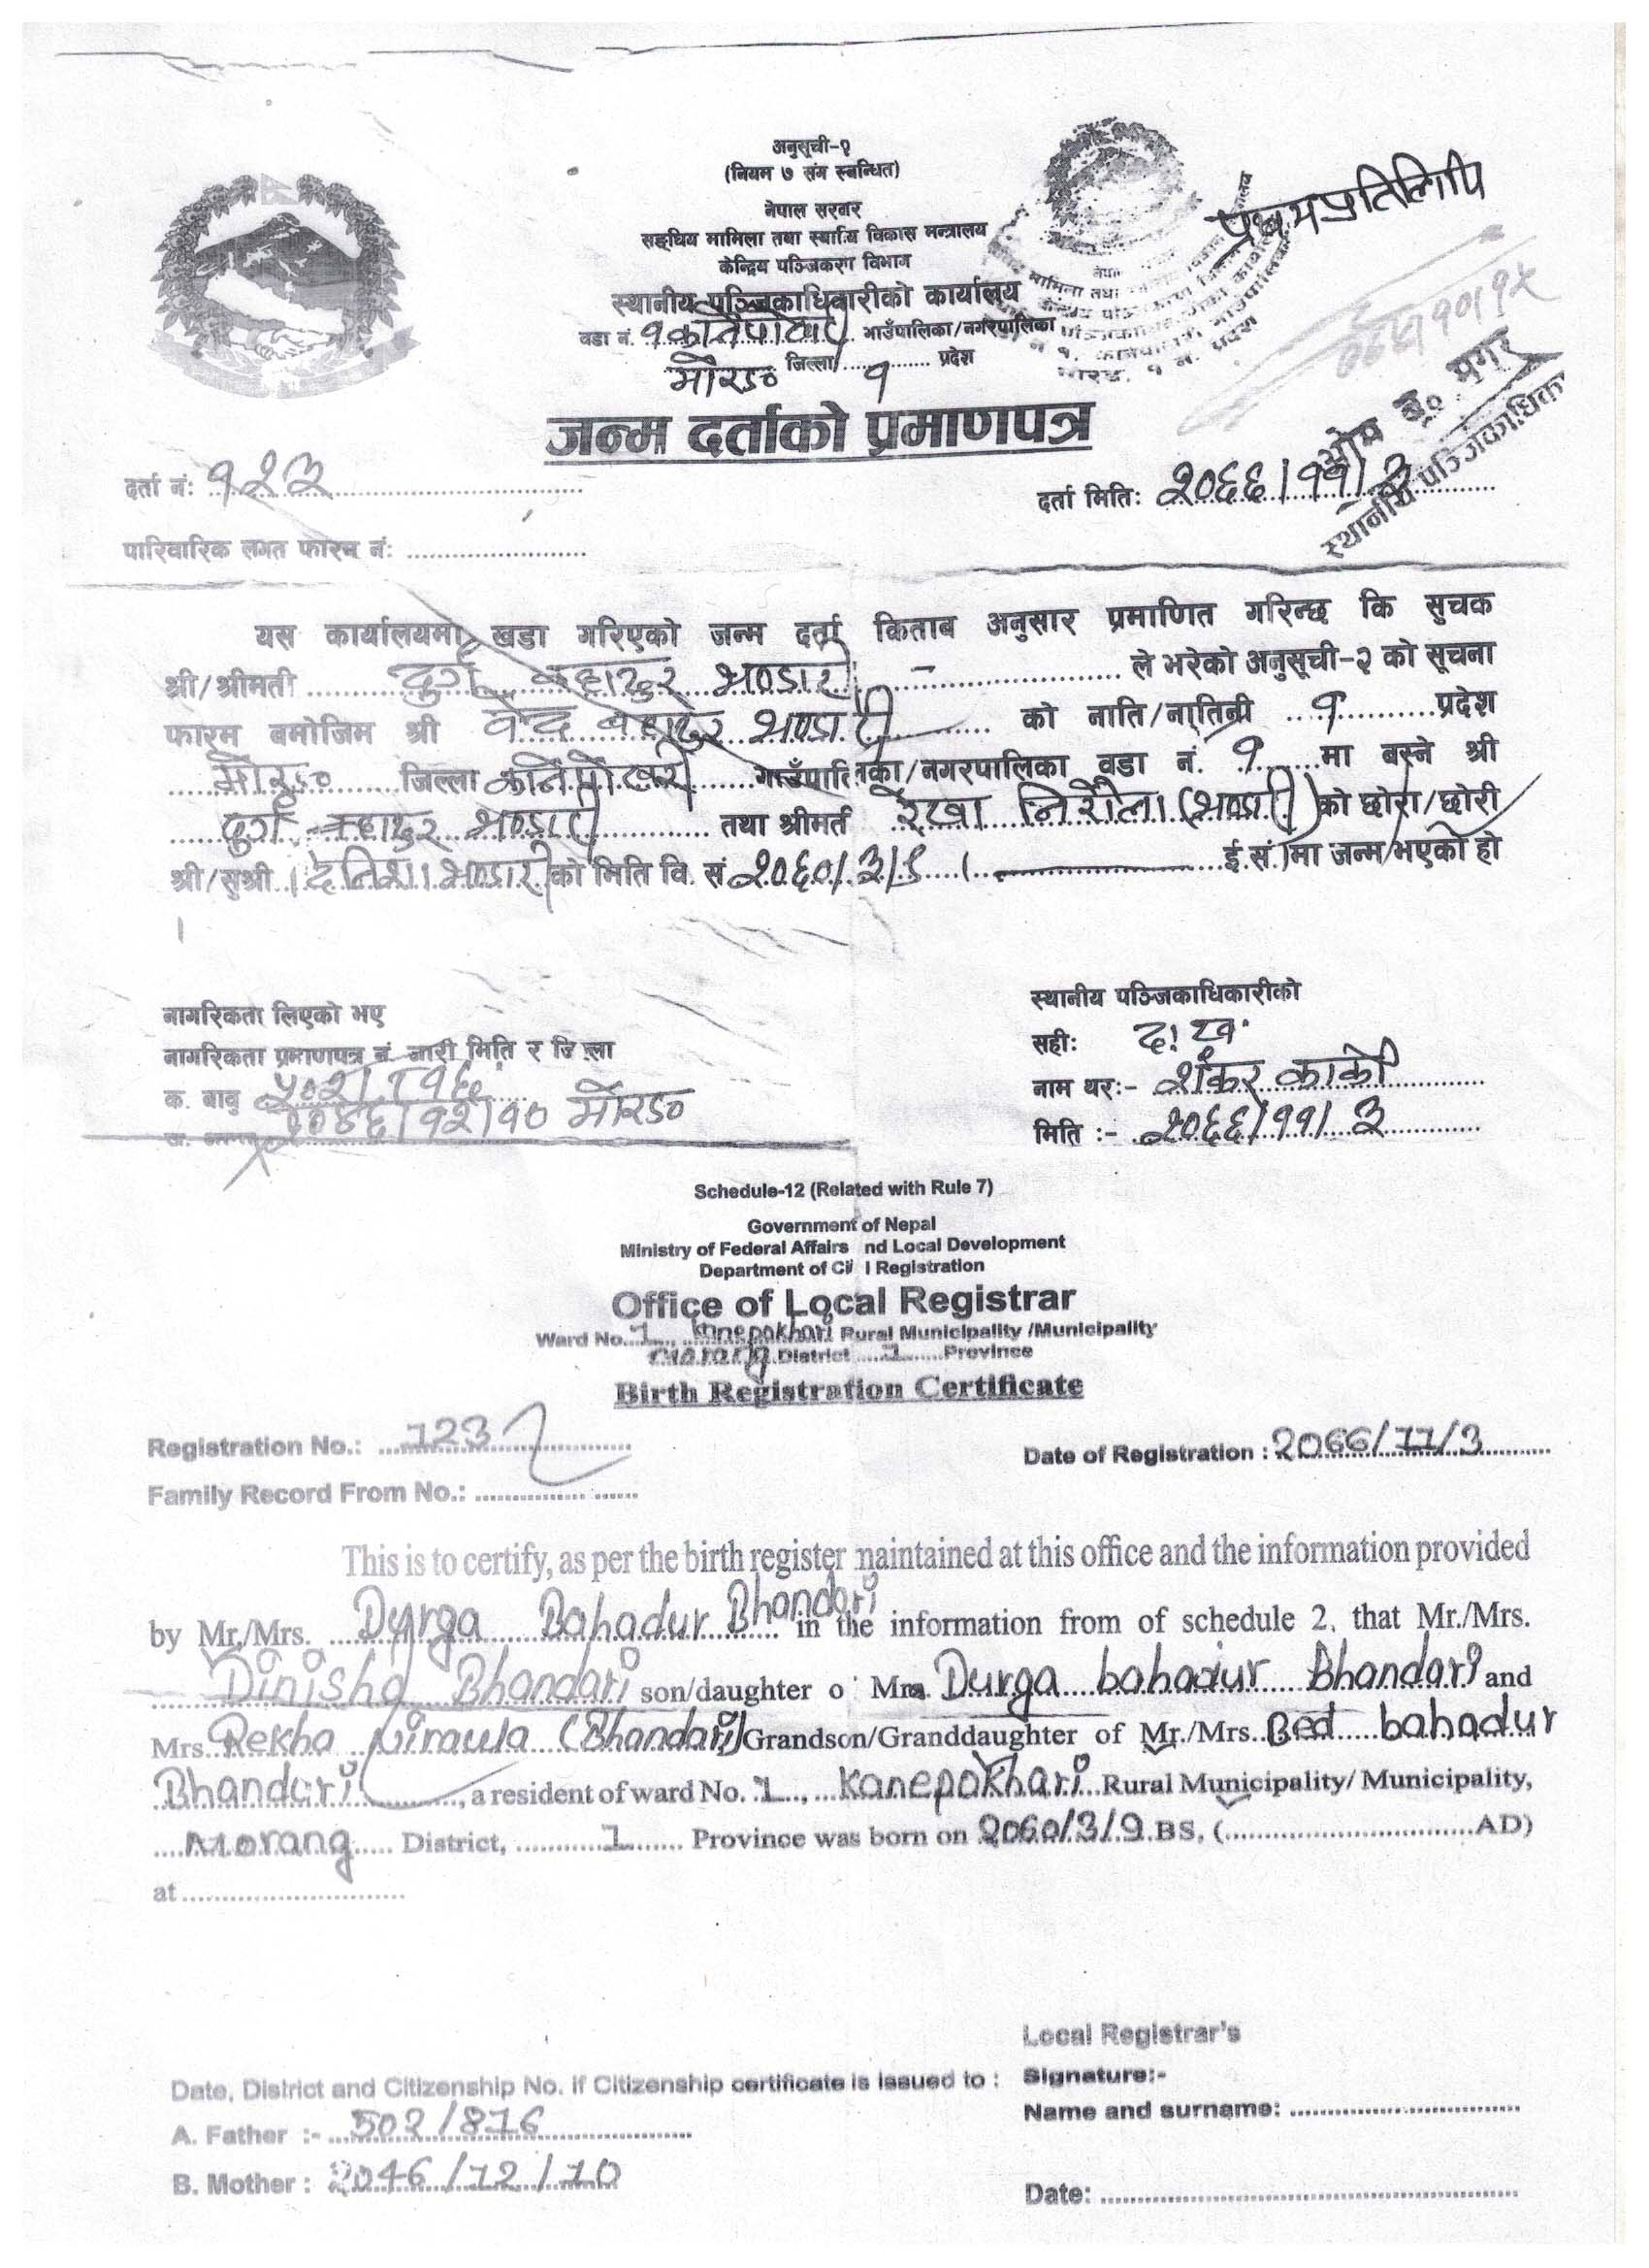 अनुसूची-१
(नियम ७ संग स्बन्धित)
नेपाल सरकार
सङ्घिय मामिला तथा स्थानिय विकास मन्त्रालय
केन्द्रिय पञ्जिकरण विभाग
स्थानीय पञ्जिकाधिकारीको कार्यालय
वडा नं. १ कानेपोखरी गाउँपालिका/नगरपालिका
मोरङ जिल्ला १ प्रदेश
प्रथम प्रतिलिपि
ओम ब. मगर
स्थानीय पञ्जिकाधिका
जन्म दर्ताको प्रमाणपत्र
दर्ता नं: १२३
दर्ता मिति: २०६६/११/३
पारिवारिक लगत फारम नं:
यस कार्यालयमा खडा गरिएको जन्म दर्ता किताब अनुसार प्रमाणित गरिन्छ कि सुचक
श्री/श्रीमती दुर्गा बहादुर भण्डारी ले भरेको अनुसूची-२ को सूचना
फारम बमोजिम श्री वेद बहादुर भण्डारी को नाति/नातिनी १ प्रदेश
मोरङ जिल्ला कानेपोखरी गाउँपालिका/नगरपालिका वडा नं. १ मा बस्ने श्री
दुर्गा बहादुर भण्डारी तथा श्रीमती रेखा निरौला (भण्डारी) को छोरा/छोरी
श्री/सुश्री दिनिशा भण्डारी को मिति वि. सं २०६०/३/९ ( ई.सं.)मा जन्म भएको हो
।
नागरिकता लिएको भए
नागरिकता प्रमाणपत्र नं जारी मिति र जिल्ला
क. बाबु ५०२/८१६
२०४६/१२/१० मोरङ
स्थानीय पञ्जिकाधिकारीको
सही: द: ख
नाम थर:- शंकर कार्की
मिति :- २०६६/११/३
Schedule-12 (Related with Rule 7)
Government of Nepal
Ministry of Federal Affairs nd Local Development
Department of Civil Registration
Office of Local Registrar
Ward No. 1, Kanepokhari Rural Municipality /Municipality
Morang District 1 Province
Birth Registration Certificate
Registration No.: 123
Date of Registration : 2066/11/3
Family Record From No.:
This is to certify, as per the birth register maintained at this office and the information provided
by Mr./Mrs. Durga Bahadur Bhandari in the information from of schedule 2, that Mr./Mrs.
Dinisha Bhandari son/daughter o Mrs. Durga bahadur Bhandari and
Mrs. Rekha Niraula (Bhandari) Grandson/Granddaughter of Mr./Mrs. Bed bahadur
Bhandari, a resident of ward No. 1, Kanepokhari Rural Municipality/ Municipality,
Morang District, 1 Province was born on 2060/3/9 BS, ( AD)
at
Local Registrar's
Date, District and Citizenship No. if Citizenship certificate is issued to :
Signature:-
A. Father :- 502/816
Name and surname:
B. Mother : 2046/12/10
Date: